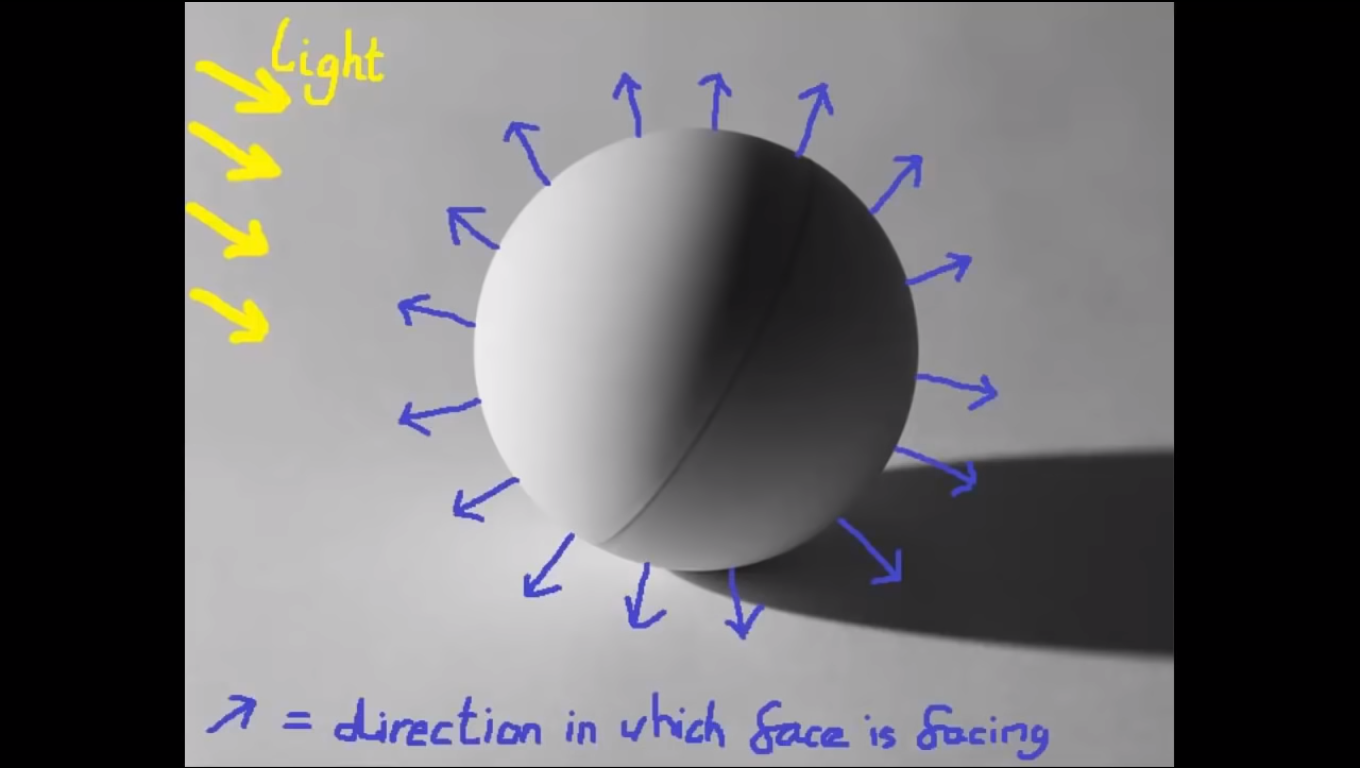 Light
↗ = direction in which face is facing